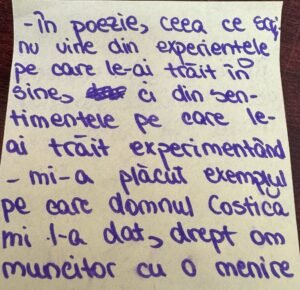 -În poezie, ceea ce scij
nu vine din experientele
pe care le-ai trăit în
sine, ci din sen-
timentele pe care le-
ai trăit experimentând
- mi-a plăcut exemplul
pe care domnul Costica
mi l-a dat, drept om
muncitor cu o menire